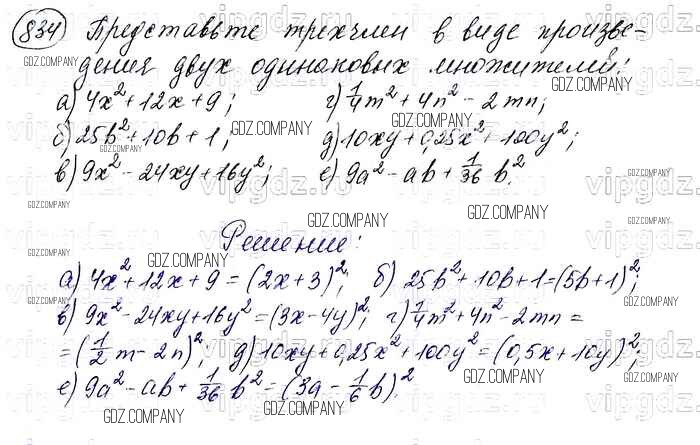 834 Представьте трехчлен в виде произве-
дения двух одинаковых множителей:
а) 4x²+12x+9; г) 1/4m²+4n²-2mn;
б) 25b²+10b+1; д) 10xy+0,25x²+100y²;
в) 9x²-24xy+16y²; е) 9a²-ab+1/36 b².
Решение:
а) 4x²+12x+9=(2x+3)²; б) 25b²+10b+1=(5b+1)²;
в) 9x²-24xy+16y²=(3x-4y)²; г) 1/4m²+4n²-2mn=
=(1/2 m-2n)²; д) 10xy+0,25x²+100y²=(0,5x+10y)²;
е) 9a²-ab+1/36 b²=(3a-1/6 b)².